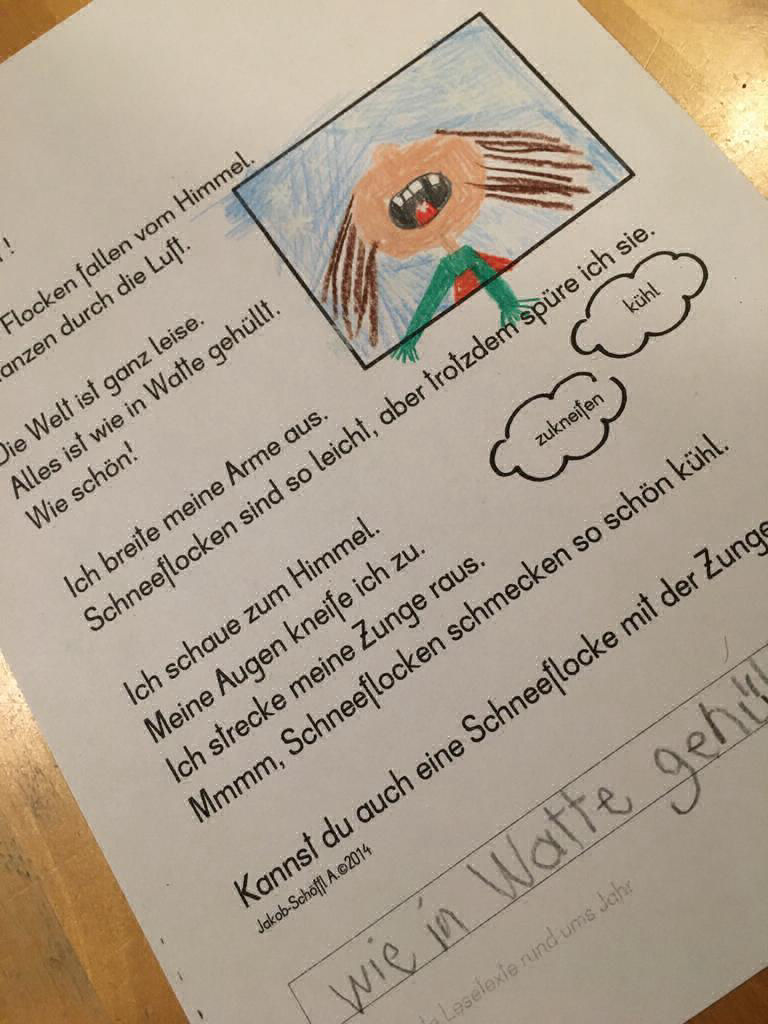 Flocken fallen vom Himmel.
durch die Luft.
Die Welt ist ganz leise.
Alles ist wie in Watte gehüllt.
Wie schön!
Ich breite meine Arme aus.
Schneeflocken sind so leicht, aber trotzdem spüre ich sie.
kühl
zukneifen
Ich schaue zum Himmel.
Meine Augen kneife ich zu.
Ich strecke meine Zunge raus.
Mmmm, Schneeflocken schmecken so schön kühl.
Kannst du auch eine Schneeflocke mit der Zunge
Jakob-Schöffl A.©2014
wie in Watte
Lesetexte rund ums Jahr